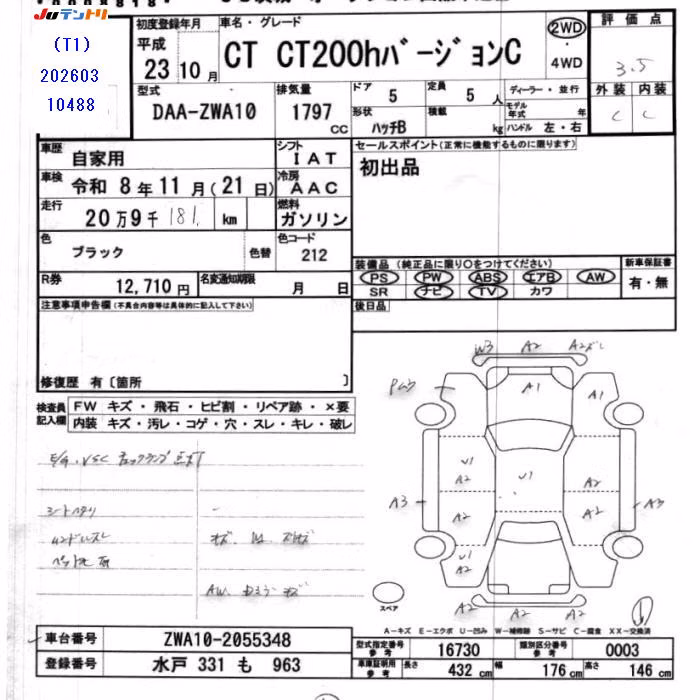 Juテントリ
(T1)
202603
10488
初度登録年月
平成
23 10 月
車名・グレード
CT CT200hバージョンC
2WD
・
4WD
評価点
3.5
外装 内装
C C
型式
DAA-ZWA10
排気量
1797
CC
ドア
5
定員
5 人
形状
ハッチB
積載
kg
ディーラー・並行
モデル年式 年
ハンドル 左・右
車歴
自家用
シフト
I A T
車検
令和 8 年 11 月 ( 21 日)
冷房
A A C
走行
20 万 9 千 181 km
燃料
ガソリン
色
ブラック
色替
色コード
212
R券
12,710 円
名変通知期限
月 日
セールスポイント(正常に機能するものに限ります)
初出品
装備品(純正品に限り〇をつけてください)
PS PW ABS エアB AW
SR ナビ TV カワ
新車保証書
有・無
後日品
注意事項申告欄(不具合内容等は具体的に記入して下さい)
修復歴 有〔箇所 〕
検査員
記入欄
FW キズ・飛石・ヒビ割・リペア跡・×要
内装 キズ・汚レ・コゲ・穴・スレ・キレ・破レ
E/G・VSC チェックランプ点灯
シートヘタリ
ハンドルスレ
W3 A2 A2
A1 A1
U1 A2
U1
A2
A3 A2 A2 A3
U1 A2
A2 A2 A2
スペア
A-キズ E-エクボ U-凹み W-補修跡 S-サビ C-腐食 XX-交換済
車台番号
ZWA10-2055348
登録番号
水戸 331 も 963
型式指定番号
参考
16730
類別区分番号
参考
0003
車庫証明用
参考
長さ 432 cm
幅 176 cm
高さ 146 cm